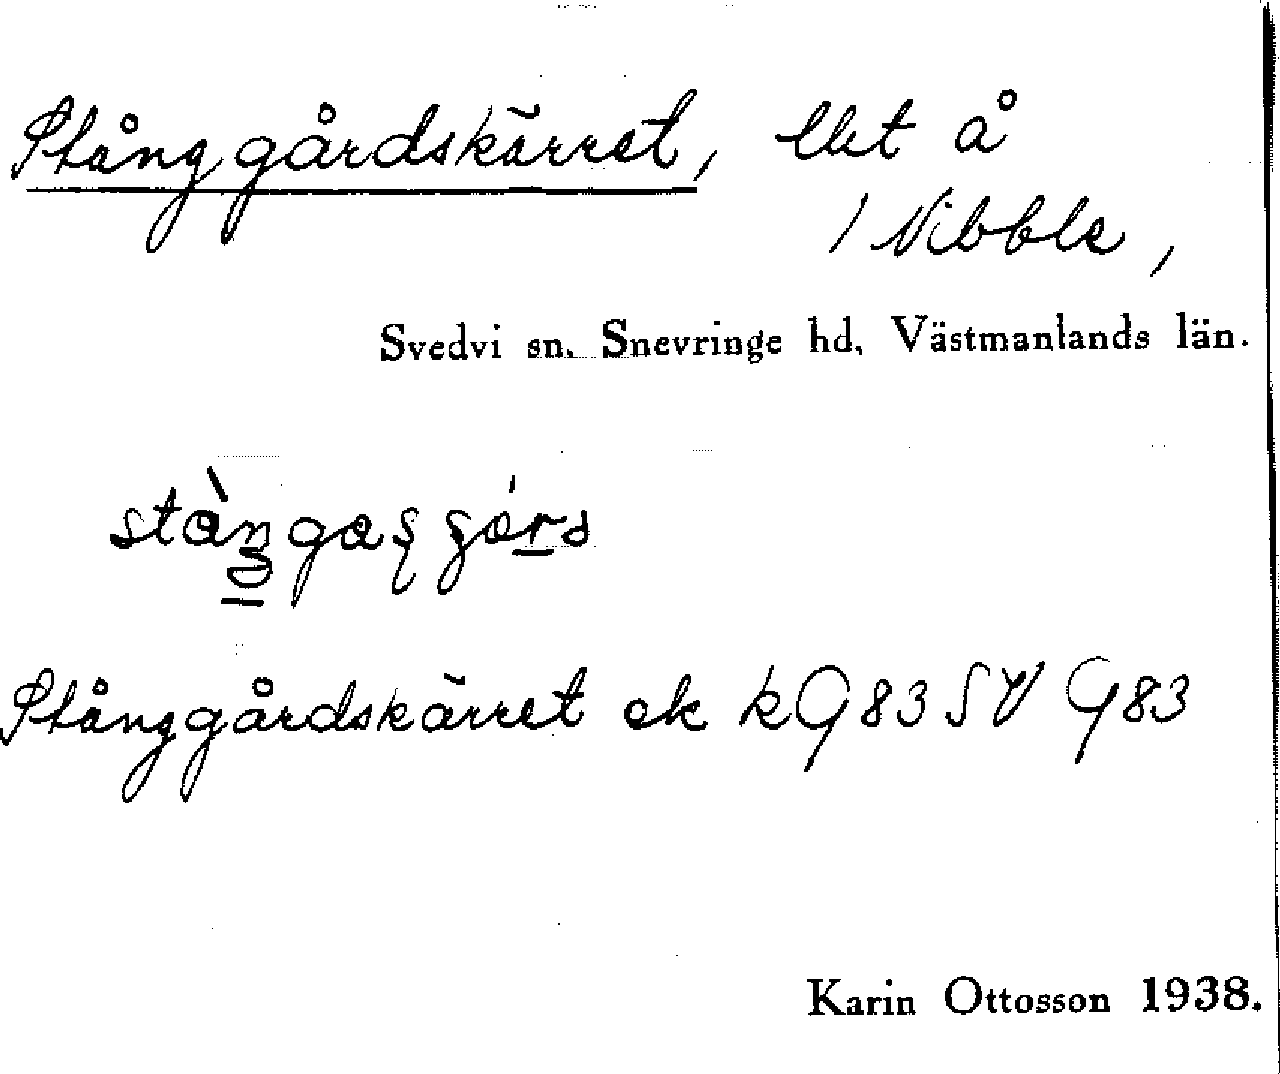 Stånggårdskärret, llet å
/ Nibble,
Svedvi sn. Snevringe hd. Västmanlands län.
Stånggårdskärret ek k G 83 SV G 83
Karin Ottosson 1938.